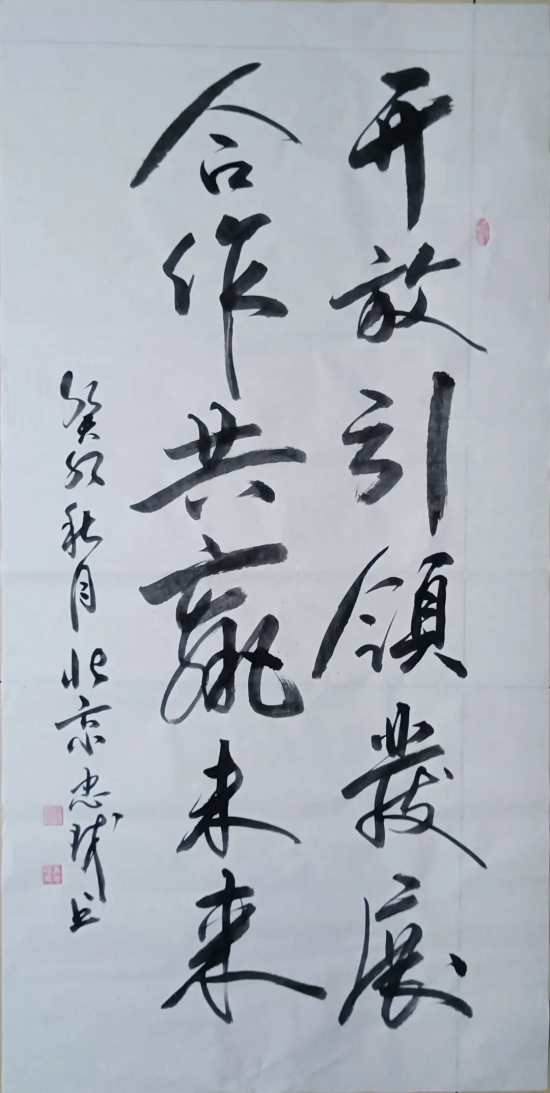 开放引领發展
合作共赢未来
癸卯秋月北京忠诚书